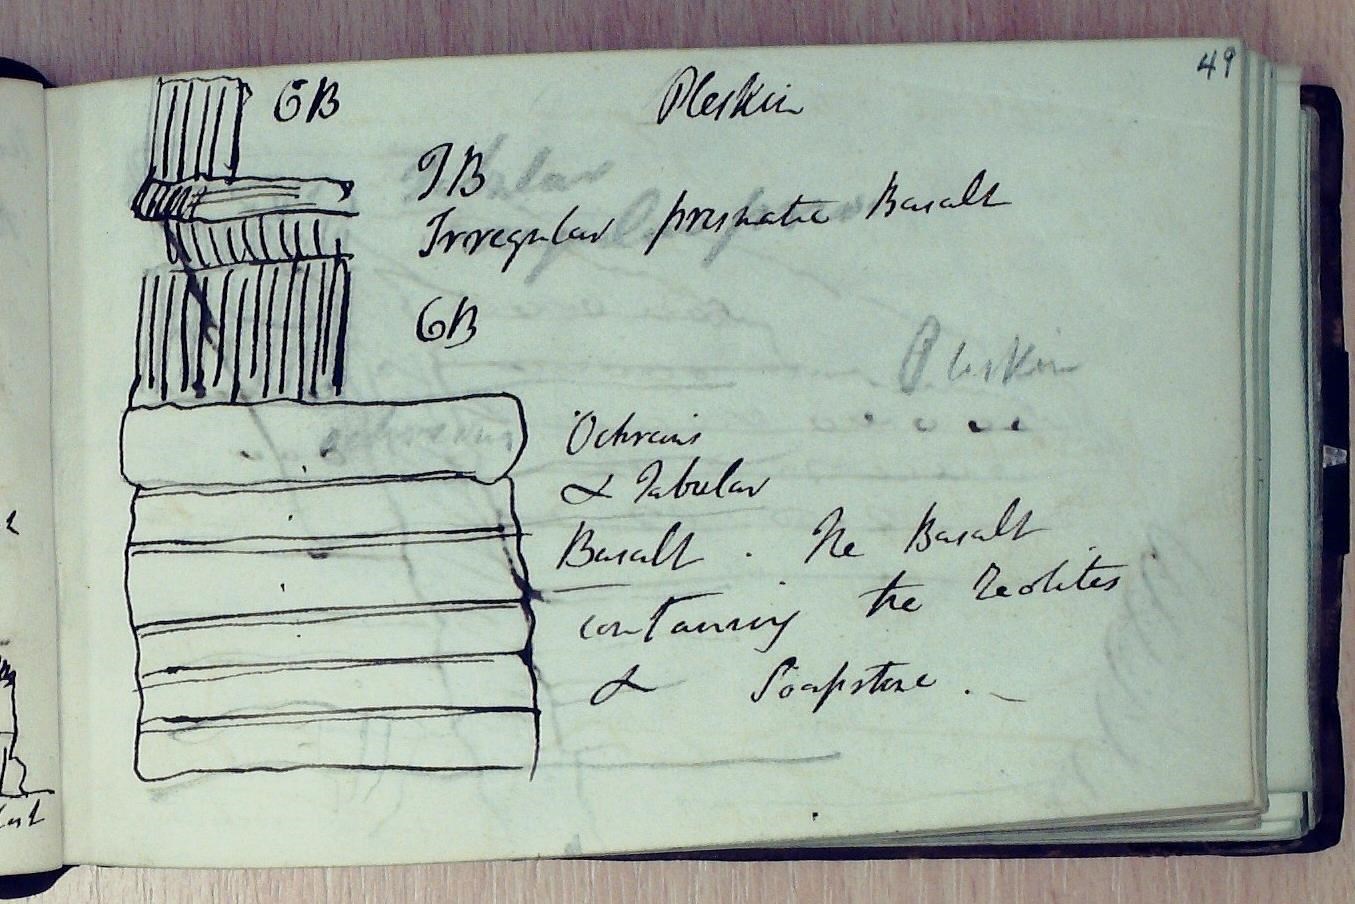 49
GB
Pleskin
TB
Irregular prismatic Basalt
GB
Pleskin
Ochreous
& Tabular
Basalt. The Basalt
containing the Zeolites
& Soapstone.